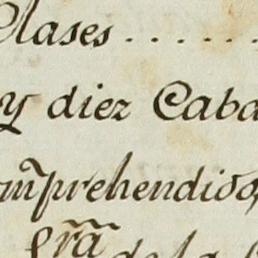 Clases . . . . . .
y diez Caba
omprehendidos,
fra de la